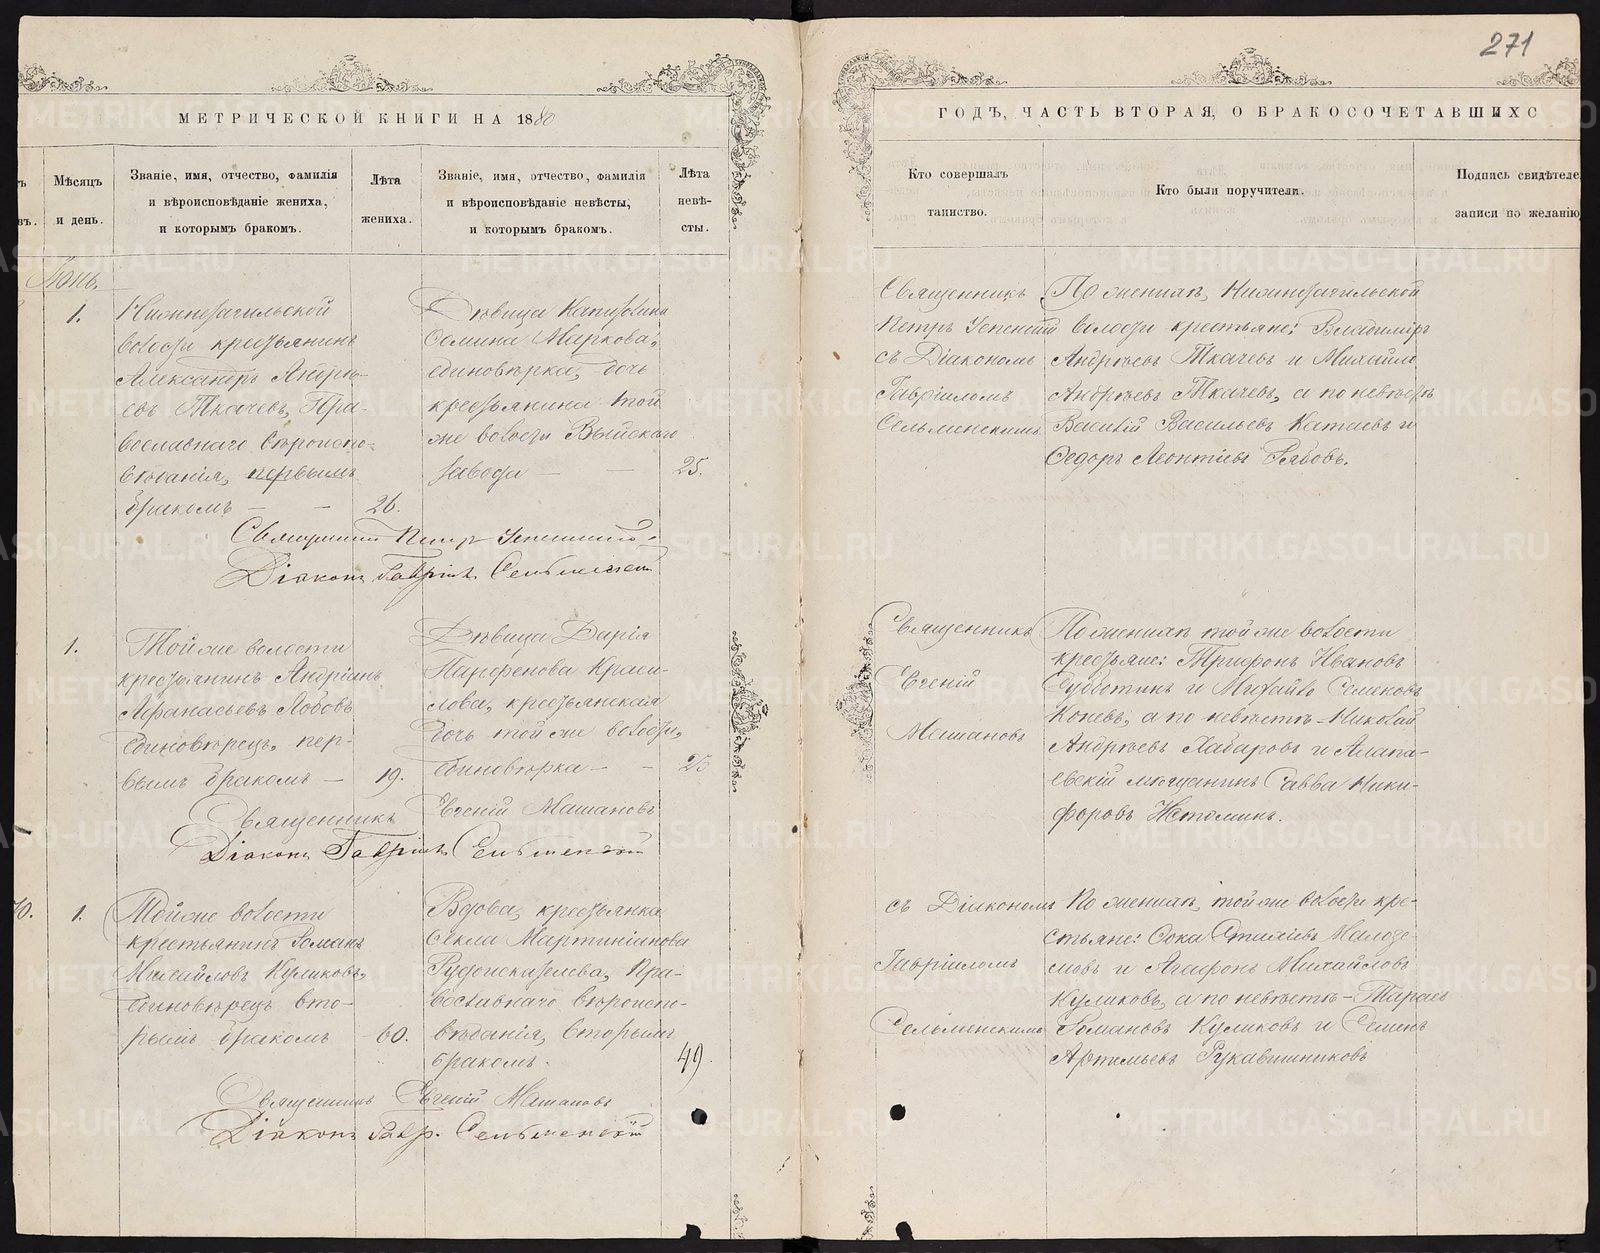 271
МЕТРИЧЕСКОЙ КНИГИ НА 1880
ГОДЪ, ЧАСТЬ ВТОРАЯ, О БРАКОСОЧЕТАВШИХС
Мѣсяцъ
и день.
Званіе, имя, отчество, фамилія
и вѣроисповѣданіе жениха,
и которымъ бракомъ.
Лѣта
жениха.
Званіе, имя, отчество, фамилія
и вѣроисповѣданіе невѣсты,
и которымъ бракомъ.
Лѣта
невѣ-
сты.
Кто совершалъ
таинство.
Кто были поручители.
Подпись свидѣтеле
записи по желанію
1.
Нижнетагильской
волости крестьянинъ
Александръ Андрѣ-
евъ Ткачевъ, Пра-
вославнаго вѣроиспо-
вѣданія, первымъ
бракомъ — —
26.
Дѣвица Капитолина
Маркова,
единовѣрка, дочь
крестьянина той
же волости Выйскаго
завода — —
25.
Священникъ Петръ Успенскій
Діаконъ Гавріилъ Сельменскій
Священникъ
Петръ Успенскій
съ Діакономъ
Гавріиломъ
Сельменскимъ
По женихѣ, Нижнетагильской
волости крестьяне: Владиміръ
Андрѣевъ Ткачевъ и Михайло
Андрѣевъ Ткачевъ, а по невѣстѣ
Василій Васильевъ Катаевъ и
Ѳедоръ Леонтіевъ Рябовъ.
1.
Той же волости
крестьянинъ Андріанъ
Афанасьевъ Лобовъ
единовѣрецъ, пер-
вымъ бракомъ —
19.
Дѣвица Дарія
Парфенова Краси-
лова, крестьянская
дочь той же волости,
единовѣрка — —
Священникъ Евгеній Машановъ
Діаконъ Гавріилъ Сельменскій
Священникъ
Евгеній
Машановъ
По женихѣ той же волости
крестьяне: Трифонъ Ивановъ
Субботинъ и Михайло Семеновъ
Коневъ, а по невѣстѣ — Николай
Андрѣевъ Хабаровъ и Алапа-
евскій мѣщанинъ Савва Ники-
форовъ Истоминъ.
1.
Той же волости
крестьянинъ Романъ
Михайловъ Куликовъ,
единовѣрецъ вто-
рымъ бракомъ
60.
Вдова, крестьянка
Ѳекла Мартиніанова
Рудоискателева, Пра-
вославнаго вѣроиспо-
вѣданія, вторымъ
бракомъ.
49.
Священникъ Евгеній Машановъ
Діаконъ Гавр. Сельменскій
съ Діакономъ
Гавріиломъ
Сельменскимъ
По женихѣ, той же волости кре-
стьяне: Фока Малозе-
мовъ и Агафонъ Михайловъ
Куликовъ, а по невѣстѣ — Тарасъ
Романовъ Куликовъ и Семенъ
Артемьевъ Рукавишниковъ